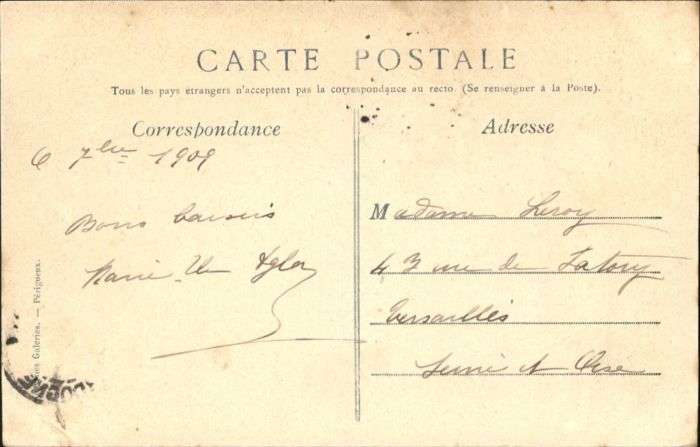 CARTE POSTALE
Tous les pays étrangers n'acceptent pas la correspondance au recto. (Se renseigner à la Poste).
Correspondance
6 7bre 1909
Bons baisers
Marie
Adresse
Madame Leroy
43 rue de Satory
Versailles
Seine et Oise
Galeries. — Périgueux.